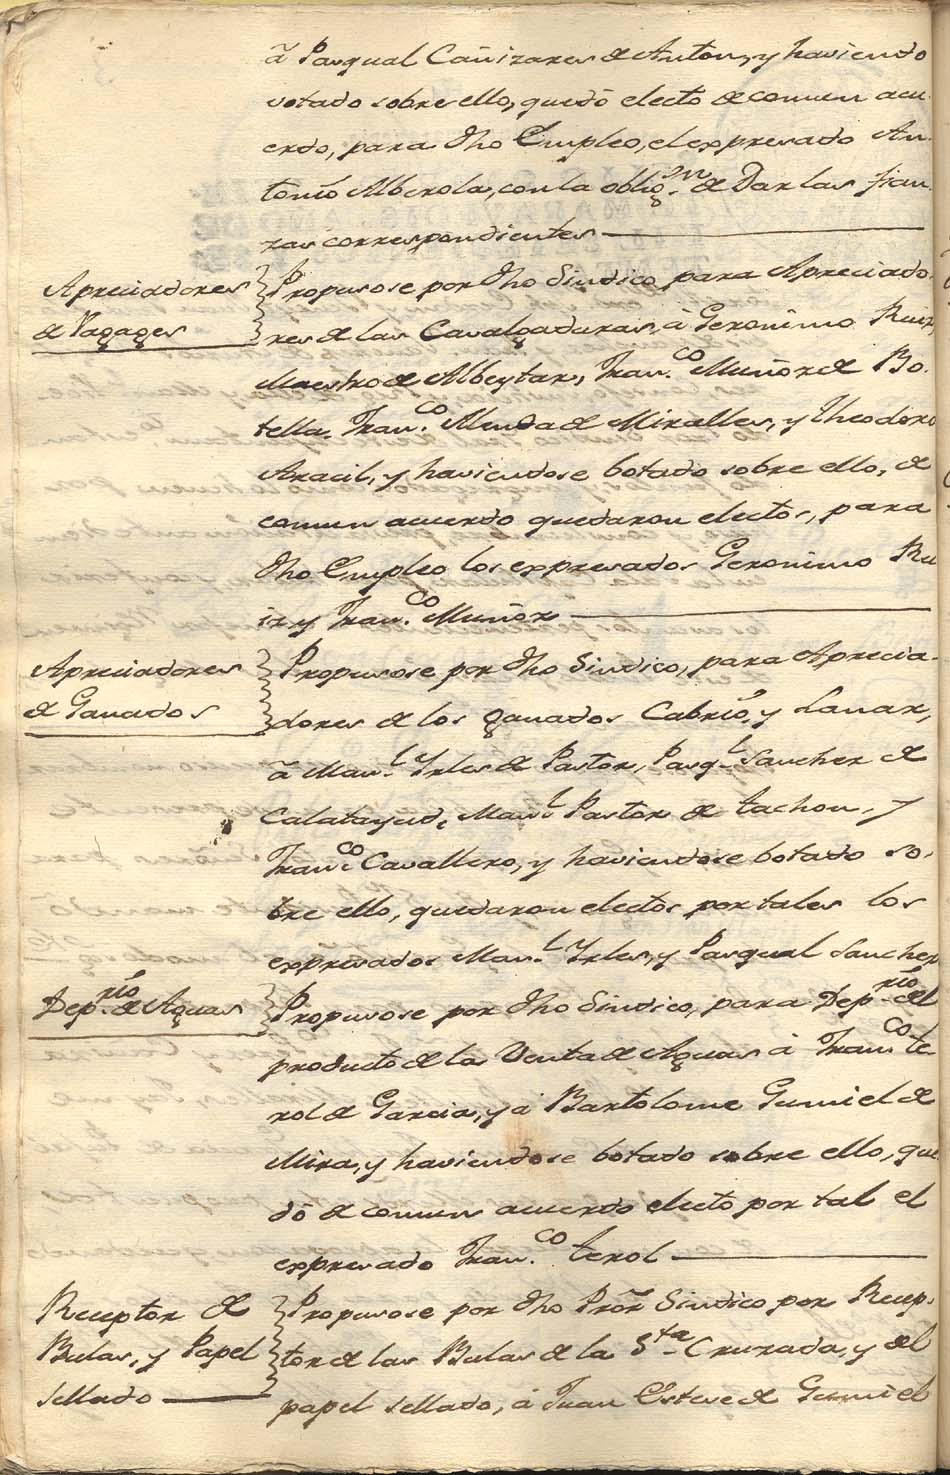 â Pasqual Cañizares de Anton, y haviendo
votado sobre ello, quedó electo de comun acu-
erdo, para dho Empleo, el expresado An-
tonio Alberola, con la obligon. de Dar las fian-
zas correspondientes
Apreciadores
de Vagages
Propusose por dho Sindico, para Apreciado-
res de las Cavalgaduras, á Geronimo Ruiz,
Maestro de Albeytar, Franco. Muñoz de Bo-
tella. Franco. Alenda de Miralles, y Theodoro
Aracil, y haviendose botado sobre ello, de
comun acuerdo quedaron electos, para
dho Empleo los expresados Geronimo Ru-
iz y Franco. Muñoz
Apreciadores
de Ganados
Propusose por dho Sindico, para Aprecia-
dores de los ganados Cabrio, y Lanar,
â Manl. Yrles de Pastor, Pasql. Sanchez de
Calatayud, Manl. Pastor de tachon, y
Franco. Cavallero, y haviendose botado so-
bre ello, quedaron electos por tales los
expresados Manl. Yrles, y Pasqual Sanchez
Deprio. de Aguas
Propusose por dho Sindico, para Deprio. del
producto de la Venta de Aguas á Franco. te-
rol de Garcia, y á Bartolome Gumiel de
Mira, y haviendose botado sobre ello, que-
dó de comun acuerdo electo por tal el
expresado Franco. terol
Receptor de
Bulas, y Papel
sellado
Propusose por dho Pror. Sindico por Recep-
tor de las Bulas de la Sta. Cruzada, y del
papel sellado, á Juan Esteve de Gumiel